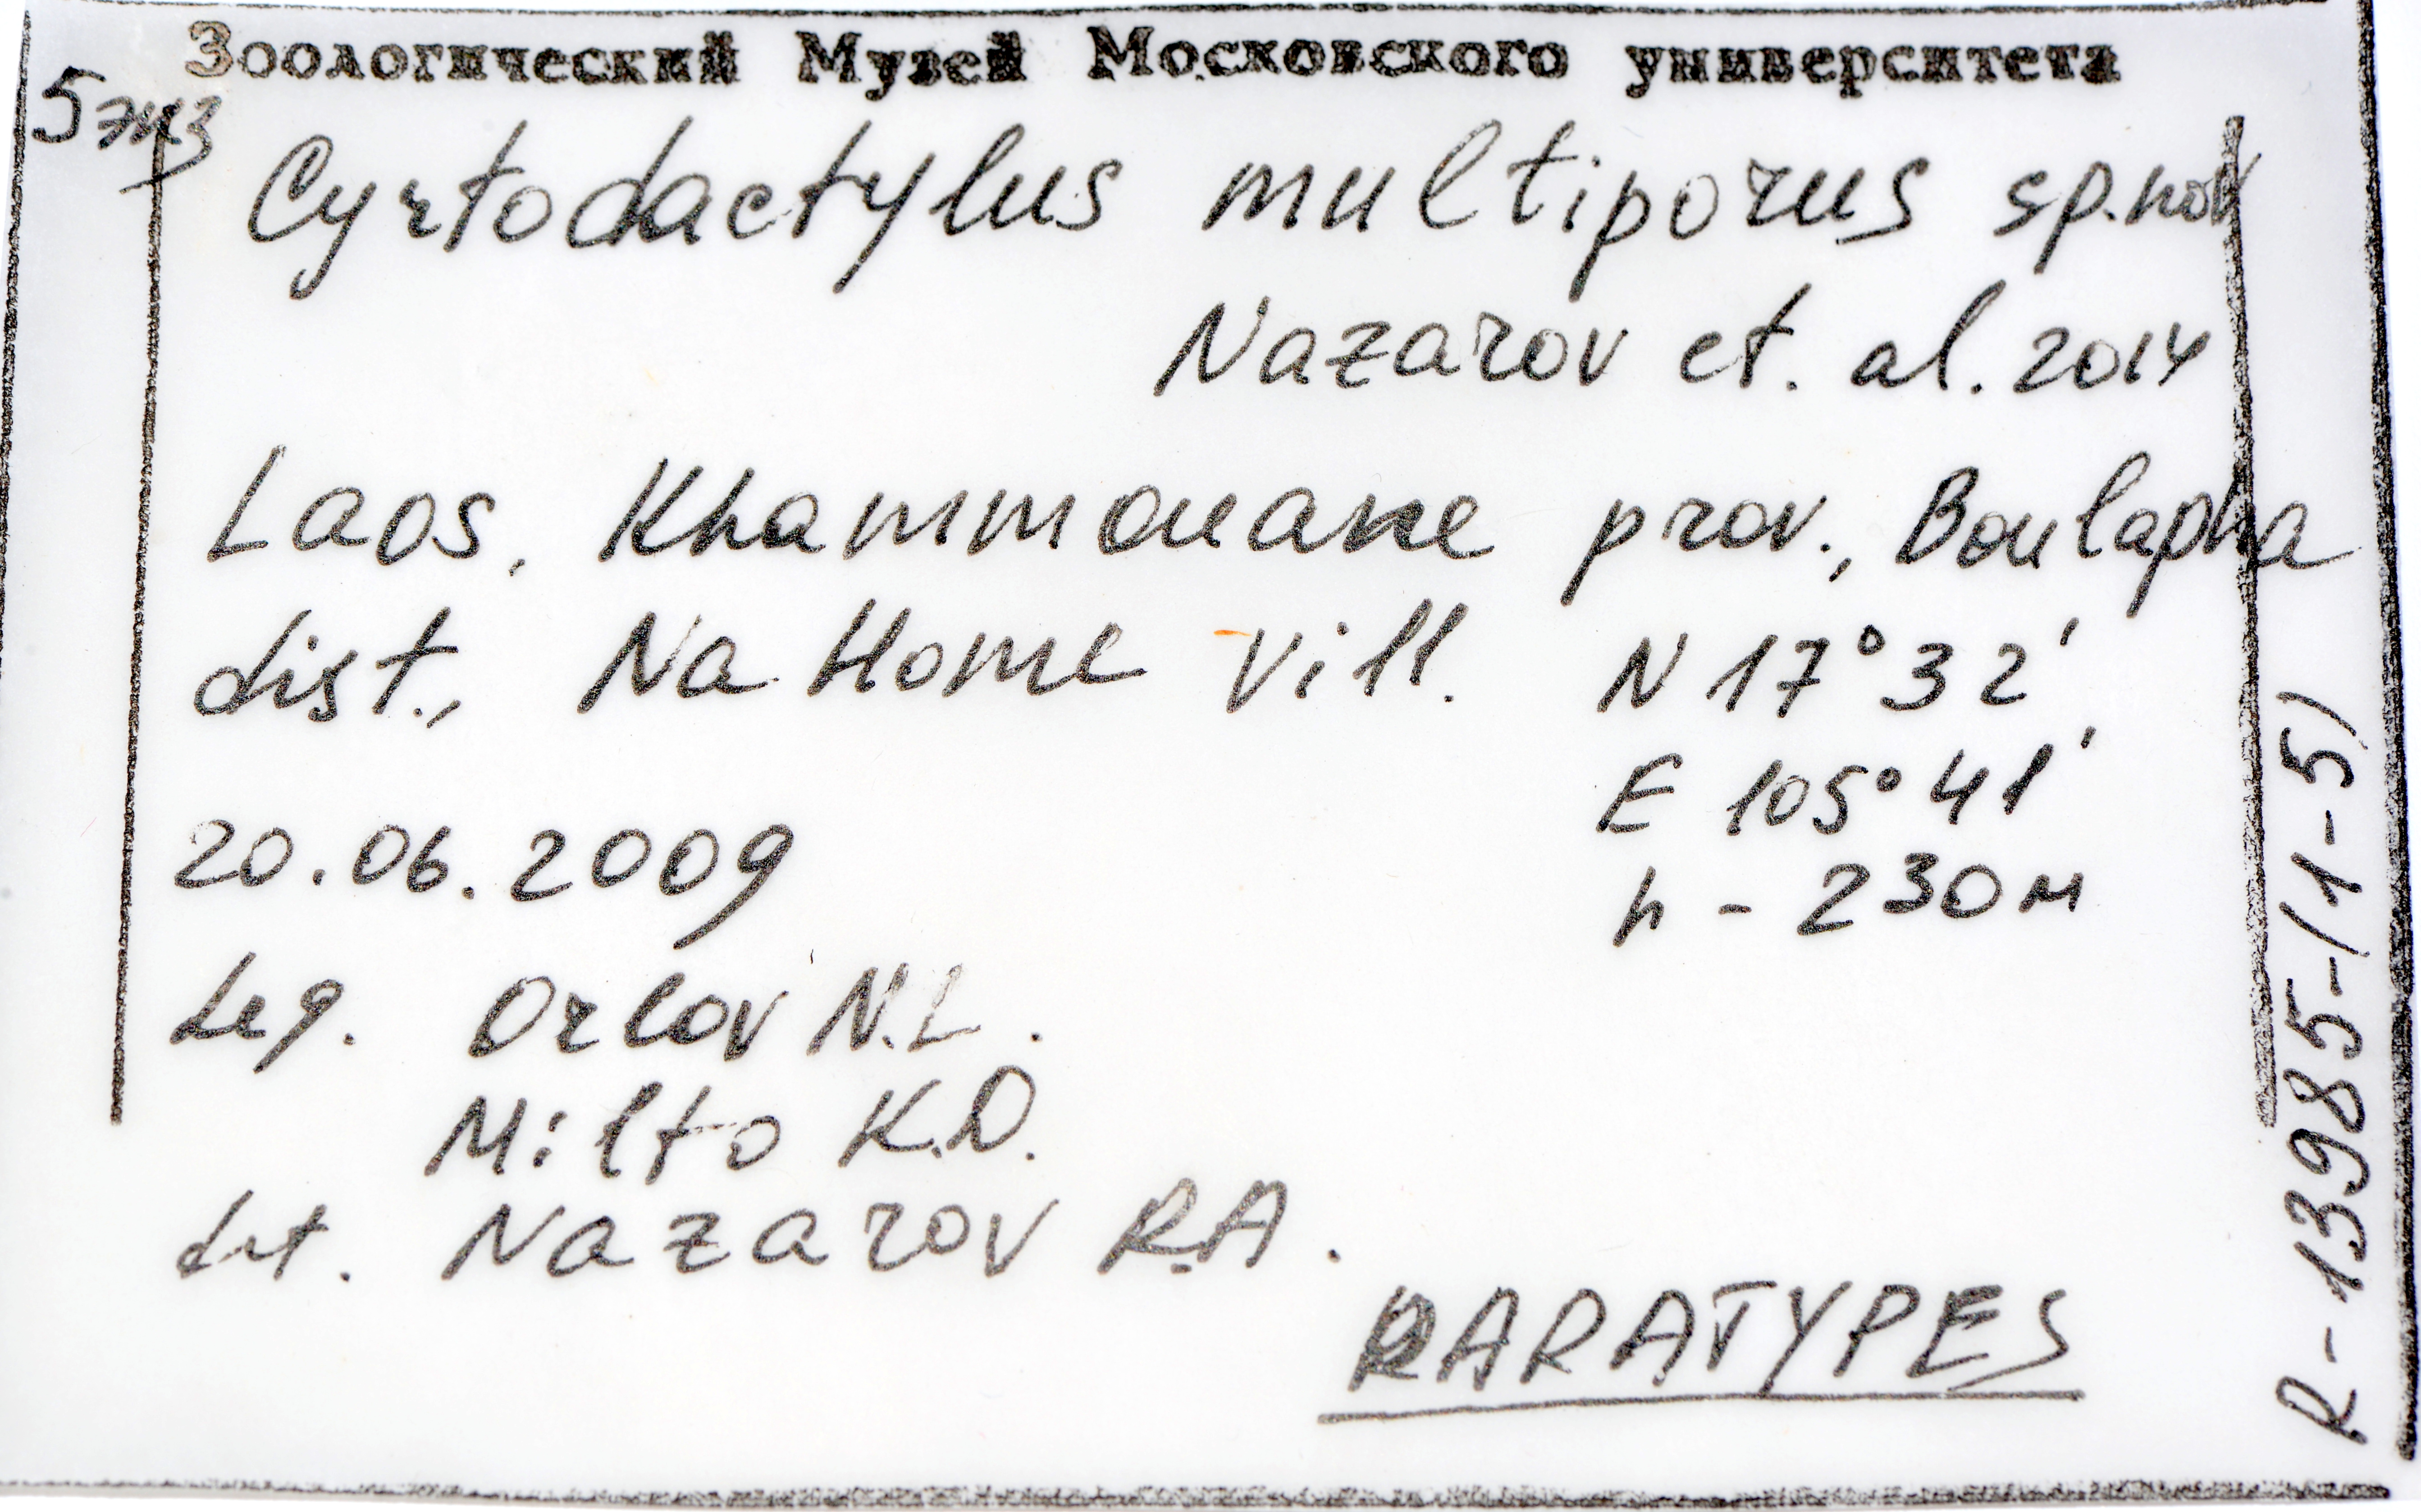 Зоологический Музей Московского университета
5 экз
Cyrtodactylus multiporus sp.nov
Nazarov et. al. 2014
Laos, Khammouane prov., Boulapha
dist., Na Home vill. N 17°32',
E 105°41'
20.06.2009
h - 230 м
Leg. Orlov N.L.
Milto K.D.
det. Nazarov R.A.
PARATYPES
R-13985-(1-5)